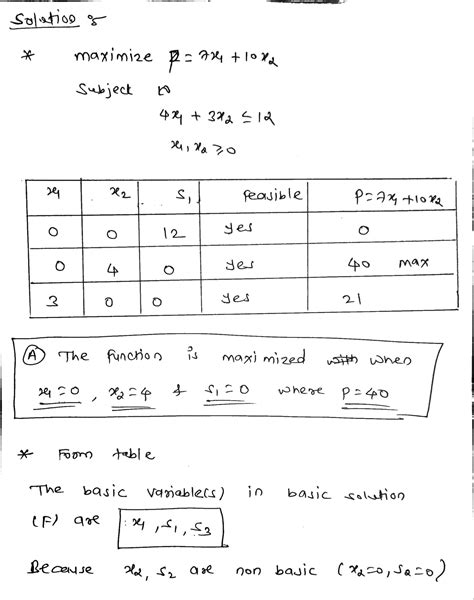 Solution :
* maximize P = 7x1 + 10x2
Subject to
4x1 + 3x2 ≤ 12
x1, x2 ≥ 0
x1 x2 S1 feasible P = 7x1 + 10x2
0 0 12 yes 0
0 4 0 yes 40 max
3 0 0 yes 21
(A) The function is maximized when
x1 = 0, x2 = 4 & S1 = 0 where P = 40
* From table
The basic variable(s) in basic solution
(F) are x1, S1, S3
Because x2, S2 are non basic (x2=0, S2=0)